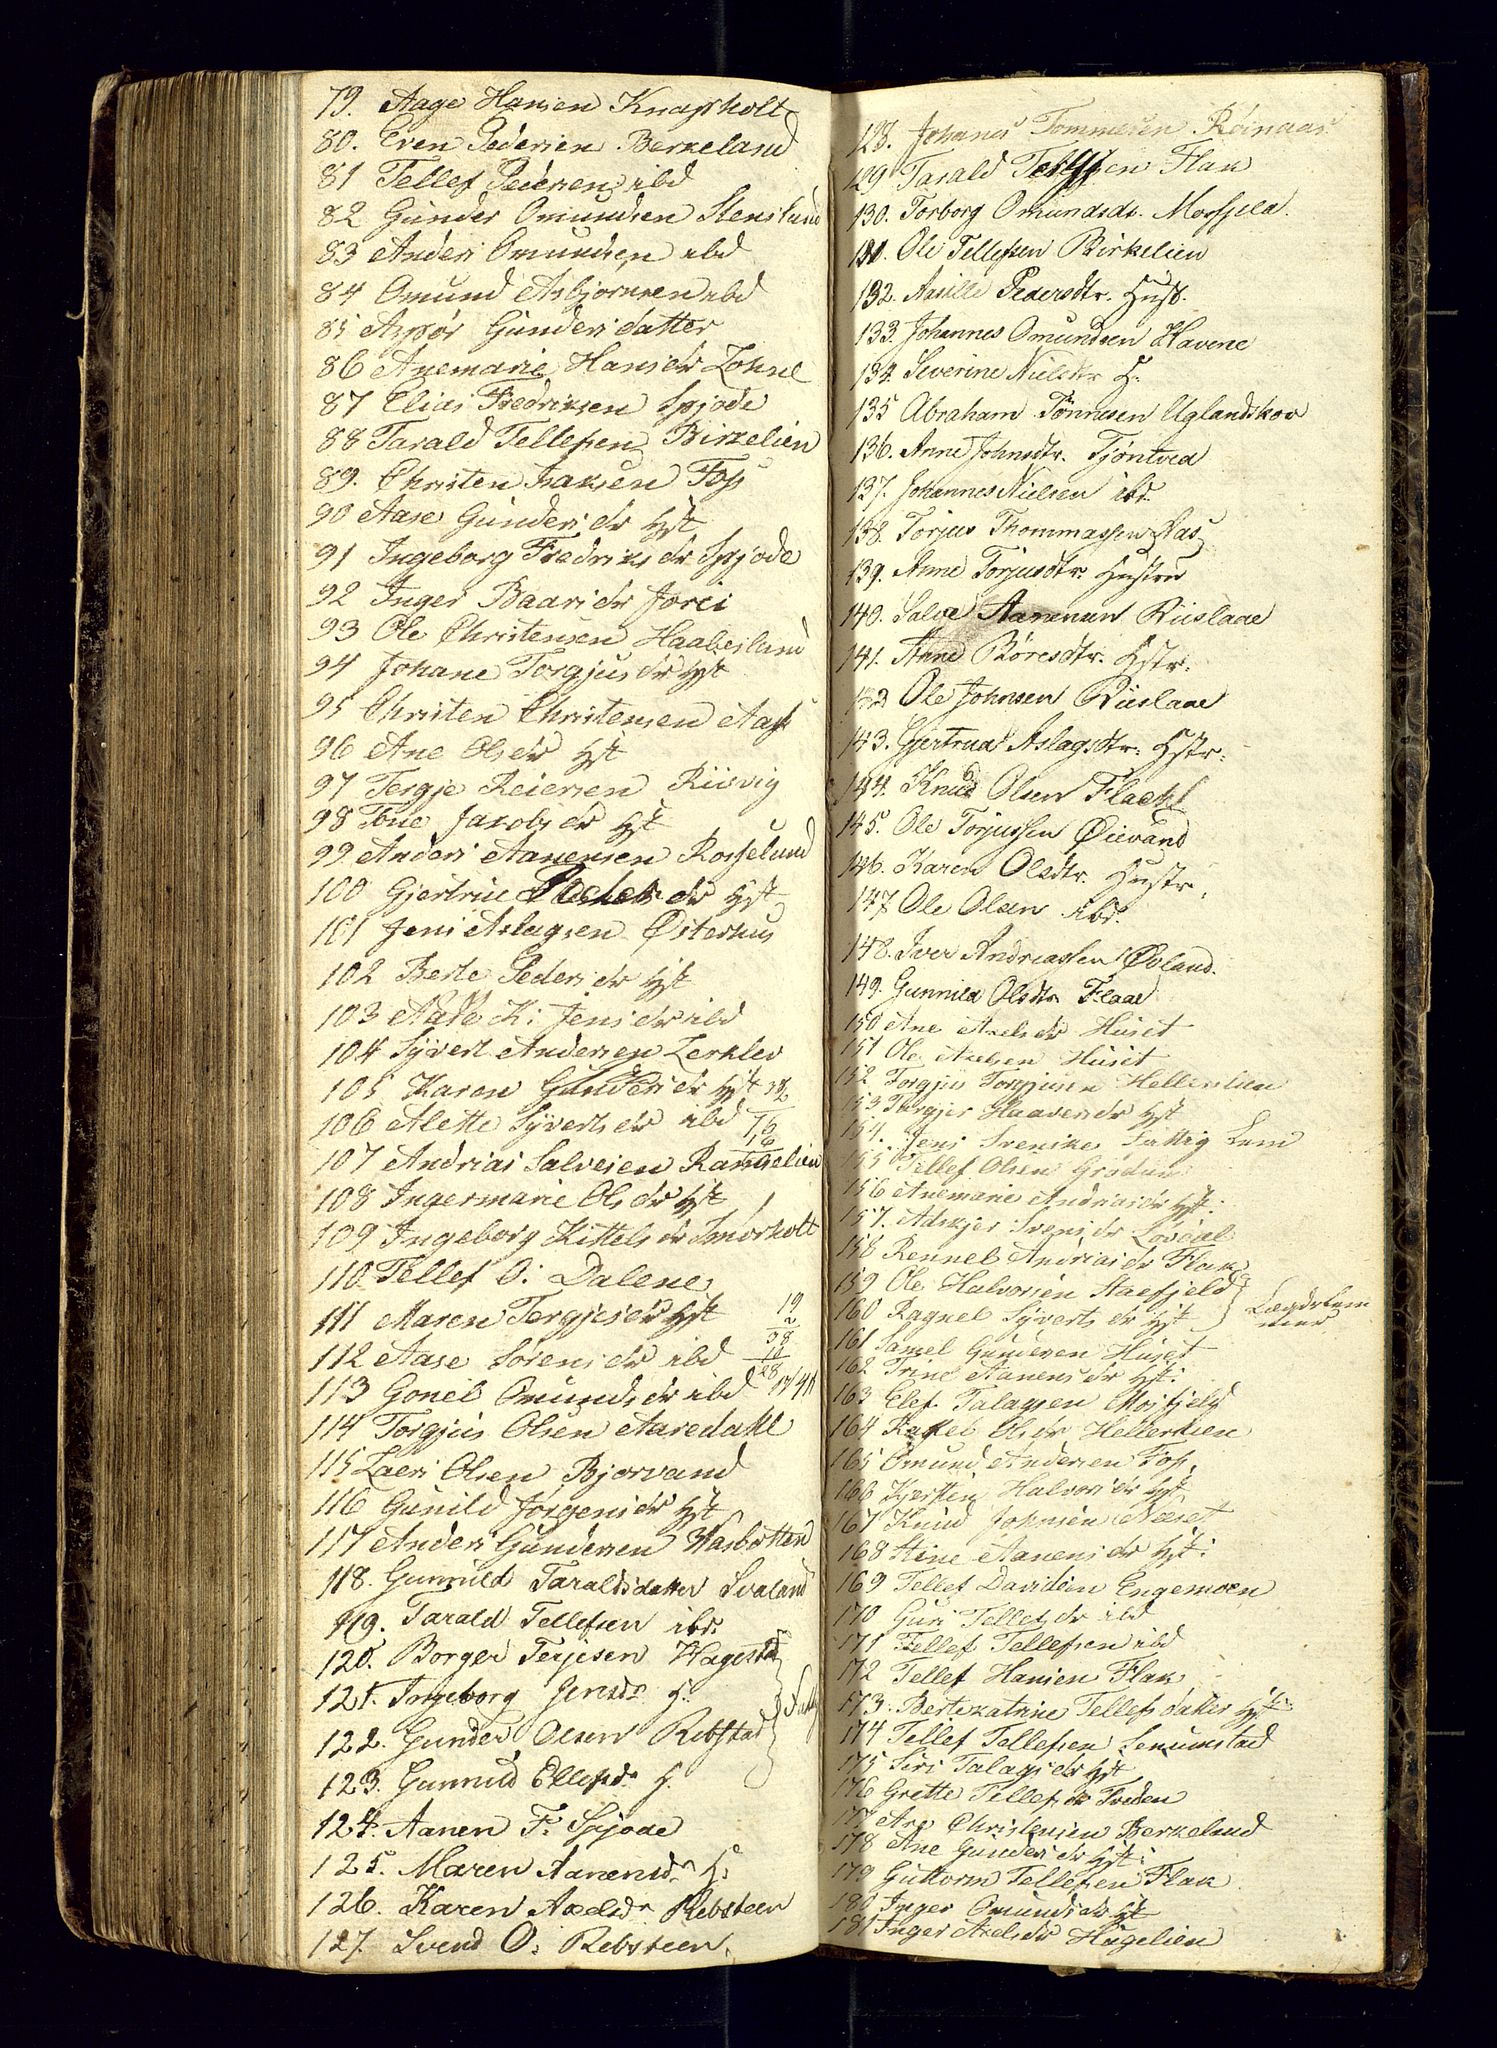 79. Aage Hansen Knapholt
80. Even Pedersen Berkeland
81 Tellef Pedersen ibd
82 Gunder Omundsen Stenslund
83 Anders Omundsen ibd
84 Omund Asbjornsen ibd
85 Aspør Gunders datter
86 Anemarie Hans dr
87 Elias Fredriksen Spjode
88 Tarald Tellefsen Birkelien
89. Christen Isaksen Fos
90 Aase Gunders dr Hst
91 Ingeborg Fredriks dr Spjode
92 Inger Baars dr
93 Ole Christensen Haabeslund
94 Johane Torgjus dr Hst
95 Christen Christensen Aas
96 Ane Ols dr Hst
97 Tergje Reiersen Riisvig
98 Tone Jacobs dr Hst
99 Anders Aanensen Rosselund
100 Gjertrue dr Hst
101 Jens Aslagsen Østerhus
102 Berte Peders dr Hst
103 K: Jens dr ibd
104 Syvert Andersen Lerklev
105 Karen Gunders dr Hst
106 Alette Syverts dr ibd
107 Andrias Salvesen Ramselien
108 Ingermarie Ols dr Hst
109 Ingeborg Kittels dr Smørholt
110 Tellef O: Dalene
111 Maren Tergjes dr Hst 19
2
38
112 Aase Sørens dr ibd 10
113 Gonil Omunds dr ibd
114 Torgjus Olsen Aaredahl
115 Laers Olsen Bjorvand
116 Gunild Jørgens dr Hst
117 Anders Gundersen Vasbotten
118. Gunnild Taraldsdatter Svaland
119. Tarald Tellefsen ibd.
120. Borger Terjesen Hagestad
121. Ingeborg Jensdr H.
122. Gunder Olsen Rebstad
123. Gunnild Ellefsdr H.
124. Aanen F. Spjode
125. Maren Aanensdr H:
126. Karen Axelsdr Rebsteen
127. Svend O: Rebsteen
128. Johanes Tommesen Röinaas
129 Tarald Tellefsen Flak
130. Torborg Omundsdr. Mosfjeld.
131. Ole Tellefsen Birkelien
132. Aasille Pedersdtr. Hust.
133. Johannes Omundsen Havene
134. Severine Nielsdtr H.
135 Abraham Tönnesen Uglandskov
136. Anne Johnsdtr. Tjöntved
137. Johannes Nielsen ibd.
138. Torjus Thommassen Aas
139. Anne Torjusdtr. Hustru
140. Salve Aanensen Riislaae
141. Anne Böresdtr. Hstr.
142 Ole Johnsen Riislaae
143. Gjertrud Aslagsdtr. Hstr.
144. Knud Olsen Flaek
145. Ole Torjussen Øievand
146. Karen Olsdtr. Hustr.
147 Ole Olsen ibd.
148. Iver Andreassen Øvland.
149. Gunnild Olsdtr Flaae
150 Ane Axels dr Huset
151 Ole Axelsen Huset
152 Torgjus Torgjusen Hellerslien
153 Torgjer Haavers dr Hst
154. Jens Svenske Fattig Lem
155 Tellef Olsen Grødum
156 Anemarie Andrias dr Hst:
157. Adskjer Svens dr
158 Rennel Andrias dr Flak
159 Ole Halvorsen Staefjeld
160 Ragnel Syverts dr Hst
Lægdslem
mer
161 Samel Gundersen Huset
162 Trine Aanens dr Hst:
163 Elef Talagsen Mosfjeld
164 Ols dr Hellerslien
165 Omund Andersen Fos.
166 Kjersten Halvors dr Hst
167 Knud Johnsen Næset
168 Stine Aanens dr Hst:
169 Tellef Davidsen Engemoen
170 Guri Tellefs dr ibd
171 Tellef Tellefsen ibd
172 Tellef Hansen Flak
173. Bertekatrine Tellefs datter Hst:
174 Tellef Tellefsen Senumstad
175 Siri Talags dr Hst
176 Grette Tellefs dr Treden
177 Christensen Berkeland
178 Ane Gunders dr Hst:
179 Guttorm Tellefsen Flak
180 Inger Omunds dr Hst
181 Inger Axels dr Hagelien